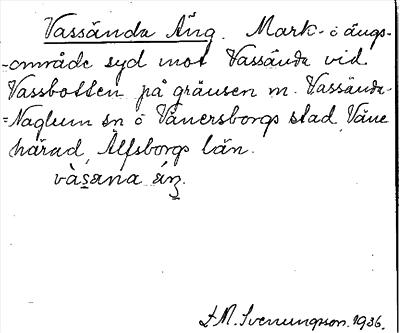 Vassända Äng. Mark- o ängs-
-område syd mot Vassända vid
Vassbotten på gränsen m. Vassända-
=Naglum sn o Vänersborgs stad, Väne
härad, Älfsborgs län.
vàsạna áŋ.
D. M. Svenungsson. 1936.